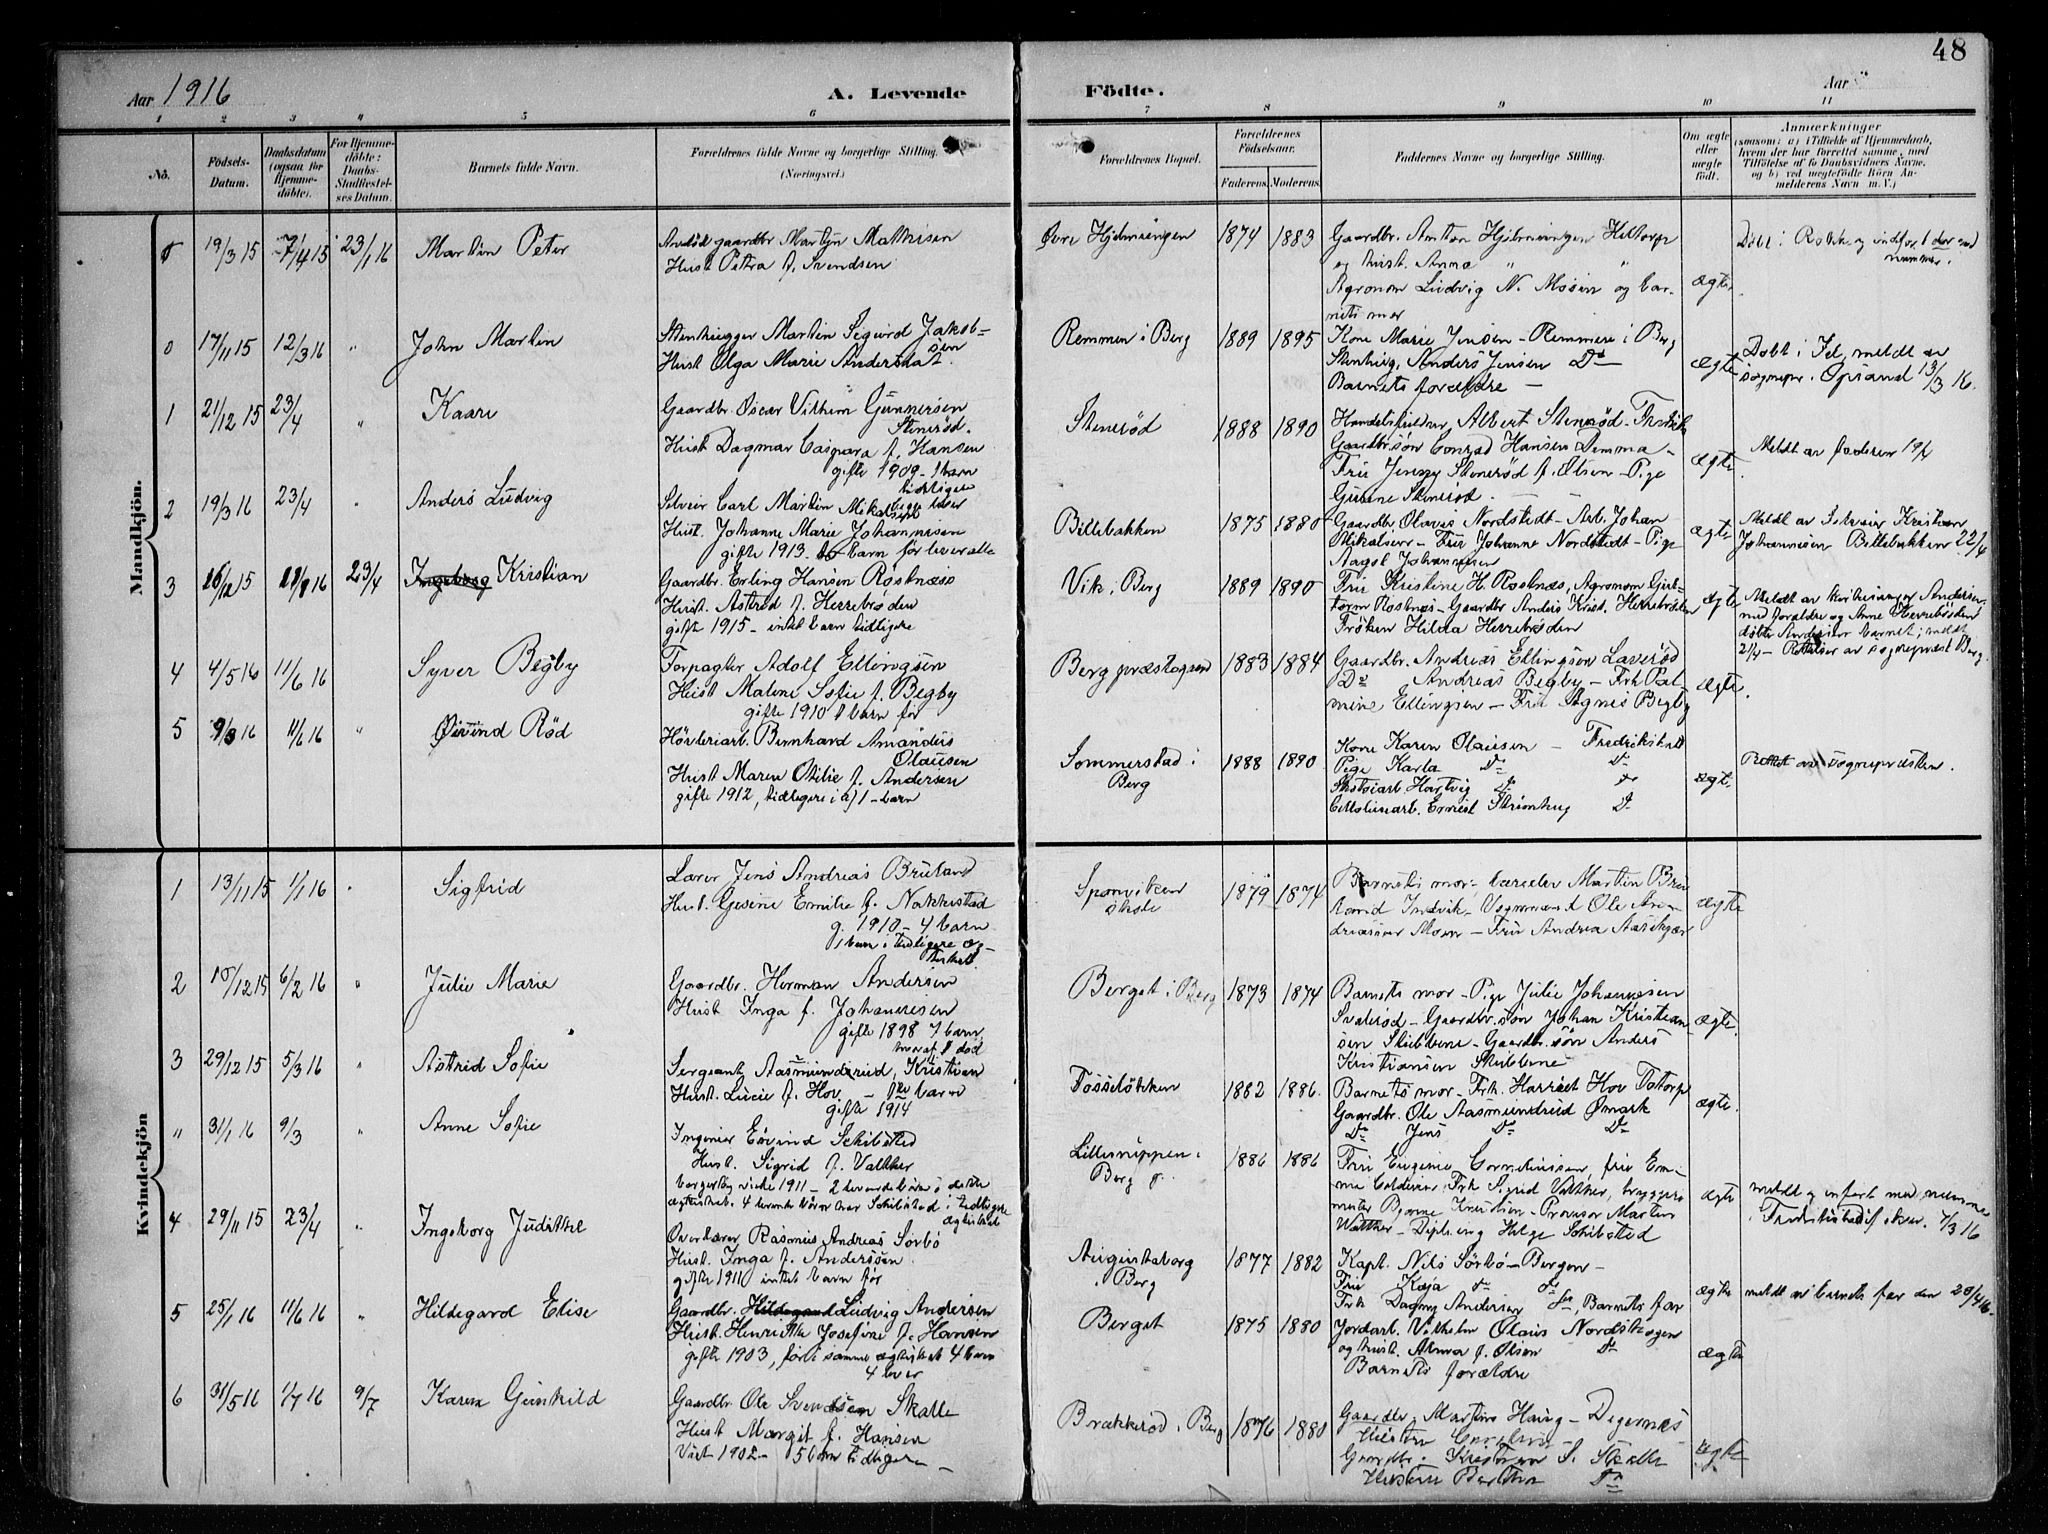 48
Aar 1916
A. Levende
Födte.
Aar
1 2 3 4 5 6 7 8 9 10 11
No.
Födsels-Datum.
Daabsdatum (ogsaa for Hjemmedöbte).
For Hjemmedöbte: Daabs-Stadfæstelses Datum.
Barnets fulde Navn.
Forældrenes fulde Navne og borgerlige Stilling. (Næringsvei.)
Forældrenes Bopæl.
Forældrenes Födselsaar.
Faderens. Moderens.
Faddernes Navne og borgerlige Stilling.
Om ægte eller uægte födt.
Anmærkninger
(saasom: a) i Tilfælde af Hjemmedaab, hvem der har forrettet samme, med Tilföielse af to Daabsvidners Navne, og b) ved uægtefödte Börn Anmelderens Navn m. V.)
Mandkjön.
0 19/3 15 7/4 15 23/1 16 Martin Peter
gaardbr Martyn Mathisen
Hust Petra f. Svendsen
Øvre Hjelmungen 1874 1883
Gaardbr. Anton Hjelmungen
og hust. Anna " "
Agronom Ludvig N. Mosen og bar-
nets mor
ægte
Døbt i Rokke og indført der med
nummer.
0 17/11 15 12/3 16 " John Martin
Stenhugger Martin Sigurd Jakob-
sen
Hust Olga Marie Andersdat.
Remmen i Berg 1889 1895
Kone Marie Jensen - Remmen i Berg
Stenhug. Anders Jensen Do
Barnets forældre -
ægte
Døbt i Id, meldt av
sognepr. Opsand 13/3 16.
1 21/12 15 23/4 " Kaare
Gaardbr. Oscar Vilhelm Gunnersen
Stenerød.
Hust Dagmar Caspara f. Hansen
gifte 1909 - 1 barn
tidligere
Stenerød 1888 1890
Albert Stenerød
Gaardbr.søn Conrad Hansen Demma -
Fru Jenny Stenerød f. Olsen - Pige
Gunne Stenerød.
ægte
Meldt av faderen 19/4
2 19/3 16 23/4 " Anders Ludvig
Selveier Carl Martin Mikalsen
Hust. Johanne Marie Johannesen
gifte 1913 - to barn før lever alle
Billebakken 1875 1880
Gaardbr Olavis Nordstedt - Arb. Johan
Mikalsen - Fru Johanne Nordstedt - Pige
Aagot Johannesen
ægte
Meldt av Selveier Kristian
Johannesen Billebakken 22/4
3 16/12 15 23/4 Ingeborg Kristian
Gaardbr. Erling Hansen Røstnæs
Hust. Astrid f. Herrebrøden
gifte 1915 - intet barn tidligere
Vik i Berg 1889 1890
Fru Kristine H. Rostnæs, Agronom Gut-
torm Rostnæs - Gaardbr Anders Krist. Herrebrøden
Frøken Hilda Herrebrøden
ægte
Meldt av kirkesanger Andersen
med forældre og Anne Herrebrøden
døbte Andersen barnet; meldt
2/4 - Rettelser av sogneprest Berg.
4 4/5 16 11/6 16 Syver Begby
Forpagter Adolf Ellingsen
Hust Malene Sofie f. Begby
gifte 1910 1 barn før
Berg præstegaard 1883 1884
Gaardbr. Andreas Ellingsen Laverød
Do Andreas Begby - Frk Pal-
mine Ellingsen - Fru Agnes Begby
ægte.
5 9/3 16 11/6 16 " Øivind Rød
Bernhard Amandus
Olausen
Hust Maren Otilie f. Andersen
gifte 1912, tidligere i æg 1 - barn
Sommerstad i
Berg
1888 1890
Kone Karen Olausen - Fredrikshald
Pige Karla Do Do
Skotøiarb. Hartvig Do Do
Cellulosearb. Ernest Stenhug Do
ægte
Rettet av sognepræsten.
Kvindekjön
1 13/11 15 1/1 16 " Sigfrid
Lærer Jens Andreas Bruland
Hust. Gesine Emilie f. Nakkestad
g. 1910 - 4 barn
1 barn i tidligere æg-
teskab
Sponviken
skole
1879 1874
Barnets mor, Martin Bru
land Indvik - Vognmand Ole An-
dreassen Moen - Fru Andrea Aasekjær
ægte
2 10/12 15 6/2 16 " Julie Marie
Gaardbr. Herman Andersen
Hust Inga f. Johannesen
gifte 1898 7 barn
hvoraf 1 død
Berget i Berg 1873 1874
Barnets mor - Pige Julie Johannesen
Svalerød - Gaardbr.søn Johan Kristian-
sen Skibbene - Gaardbr.søn Anders
Kristiansen Skibbene
ægte.
3 29/12 15 5/3 16 " Astrid Sofie
Sergeant Aasmundsrud, Kristian
Hust. Lucie f. Hov - 1ste barn
gifte 1914
Fosseløkken 1882 1886.
Barnets mor - Frk. Harriet Hov Totorp
Gaardbr. Ole Aasmundrud Ømark
Do Jens Do Do
ægte.
" 31/1 16 9/3 " Anne Sofie
Ingeniør Eivind Schibsted
Hust. Sigrid f. Valther
borgerlig viede 1911 - 2 levende børn i dette
ægteskab. 4 levende børn har Schibsted i tidligere
ægteskab
Lillesnippen i
Berg
1886 1886
Fru Eugenie Corneliussen, fru Em-
ma Frk Sigrid Valther, brygge-
mester Bjarne Knudsen - Provisor Martin
Walther - Dipl.ing Helge Schibsted
ægte
meldt og infort med nummer
i Fredrikshald 7/3 16
4 29/11 15 23/4 " Ingeborg Judithe
Overlærer Rasmus Andreas Sørbø
Hust. Inga f. Anderssen
gifte 1911 intet barn før
Augustaborg
i Berg
1877 1882
Kapt. Nils Sörbö - Bergen -
Fru Kaja Do Do
Frk Dagny Andersen Do, Barnets far
ægte
meldt av barnets far den 20/4 16.
5 25/1 16 11/6 16 " Hildegard Elise
Gaardbr. Hildegard Ludvig Andersen
Hust. Henrikke Josefine f. Hansen
gifte 1903, før i samme ægteskab 4 barn
4 lever
Berget 1875 1880
Jordarb. Vilhelm Olaus Nordskogen
og hust. Alma f. Olsen Do
Barnets forældre
ægte
6 31/5 16 1/7 16 9/7 Karen Gunhild
Gaardbr Ole Svendsen Skalle
Hust Margit f. Hansen
Viet 1902 - 5 barn tidligere
Brækkerød i Berg 1876 1880
Gaardbr. Martin Haug - Degernes
Hustru
Gaardbr. Kristian S. Skalle
Hustru Bertha Do
ægte